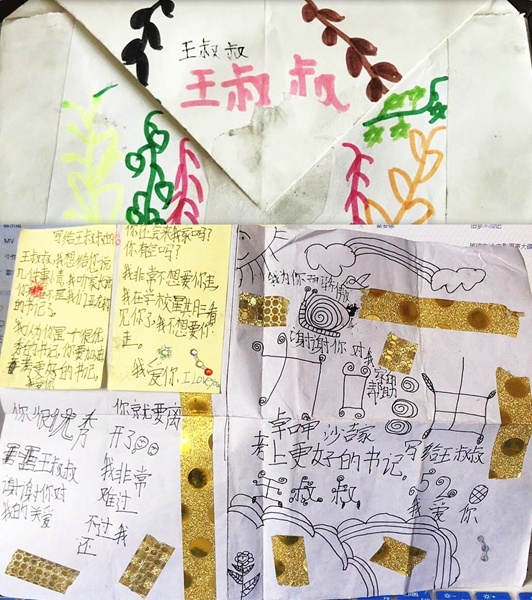 王叔叔
王叔叔
写给王叔叔的信
王叔叔,我想给你说
几件事情,我听家大人说
你
的书记。
我认为你是个很优
秀的书记,你要加油
考更好的书记。
我爱你
你还会来我家吗?
你有空吗?
我非常不想要你走
我在学校星期一看
见你了,我不想要你
走。
我爱你I Love you
我为你而骄傲
谢谢你对我
家的
帮助
你很优秀
王叔叔
谢谢你对
我的关爱
你就要离
开了
我非常
难过
不过我
还
卓呷 沙吉家
考上更好的书记。
写给王叔叔
王叔叔
520
我爱你
MV